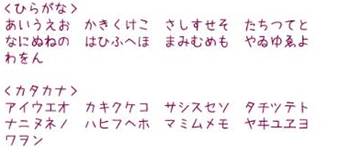 <ひらがな>
あいうえお　かきくけこ　さしすせそ　たちつてと
なにぬねの　はひふへほ　まみむめも　やゐゆゑよ
わをん
<カタカナ>
アイウエオ　カキクケコ　サシスセソ　タチツテト
ナニヌネノ　ハヒフヘホ　マミムメモ　ヤヰユヱヨ
ワヲン